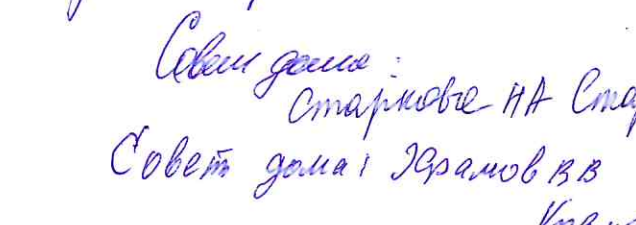 Совет дома:
Старкова НА Ста
Совет дома: Храмов В В